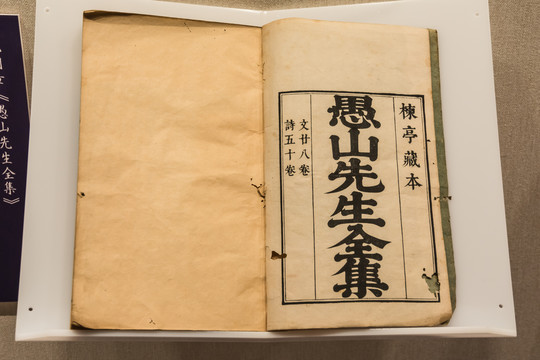 楝亭藏本
愚山先生全集
文廿八卷
詩五十卷
《愚山先生全集》